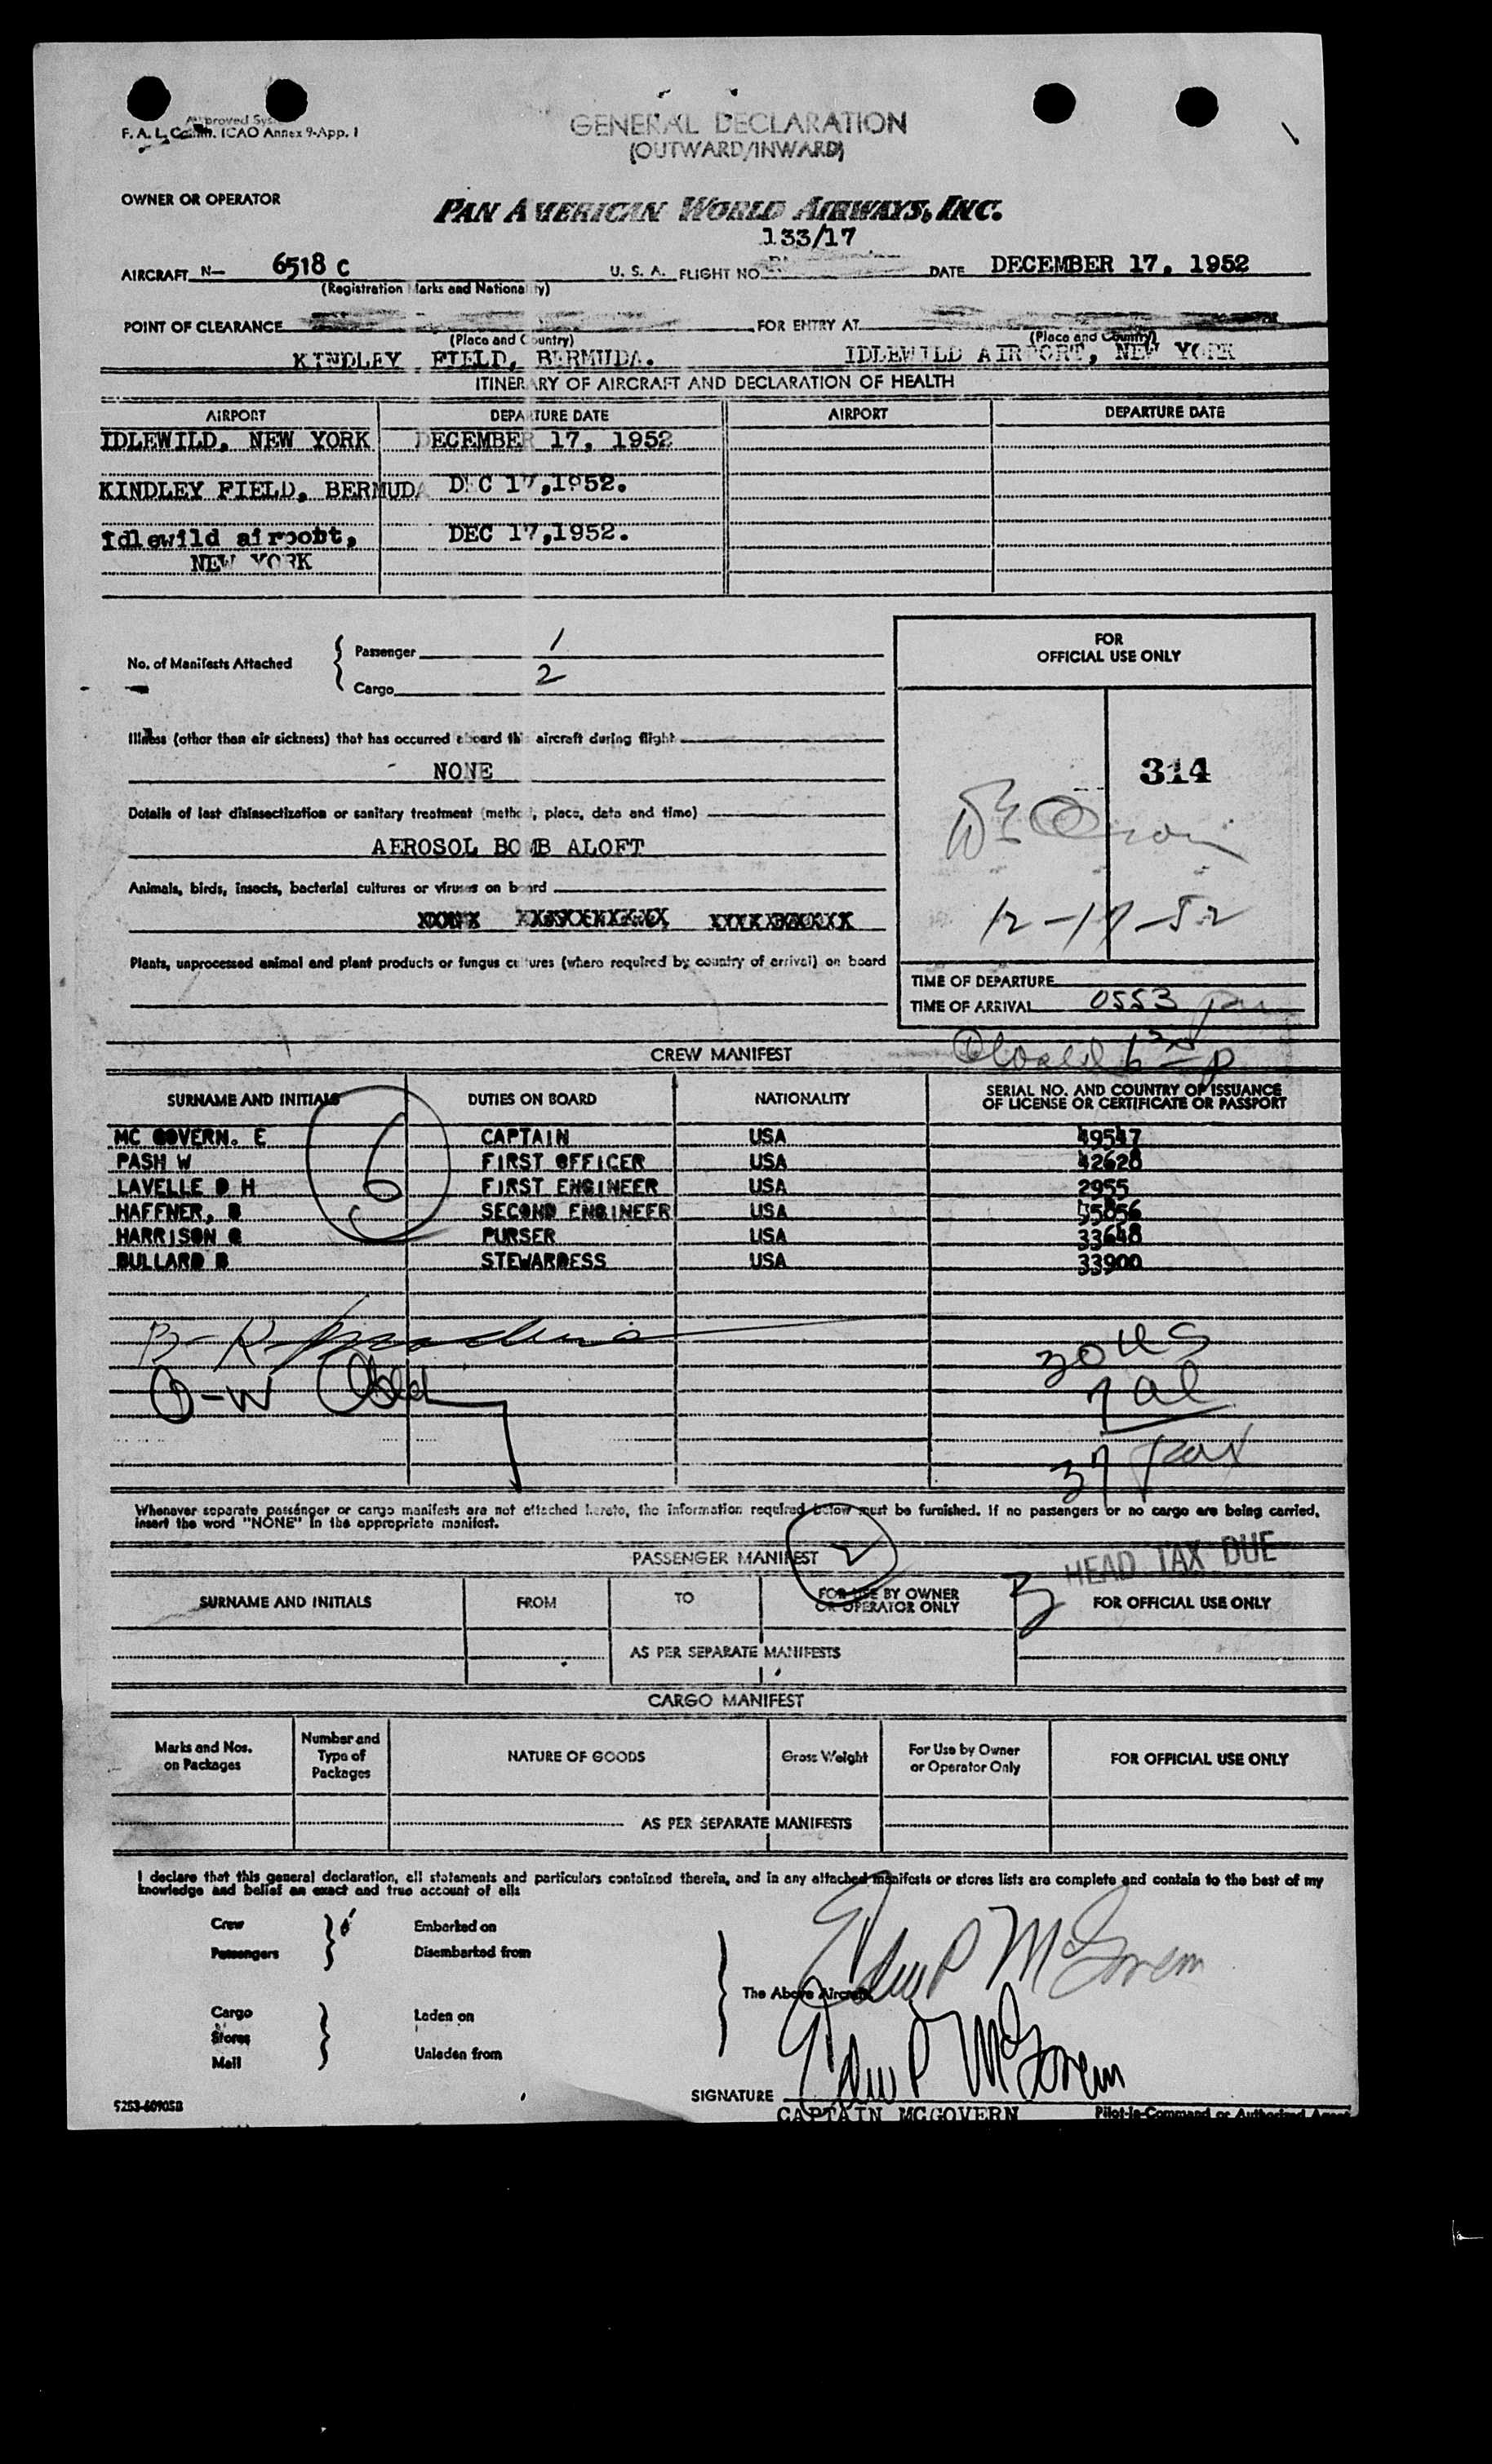 Approved Sys
F. A. L. Comm. ICAO Annex 9-App. 1
GENERAL DECLARATION
(OUTWARD/INWARD)
OWNER OR OPERATOR
PAN AMERICAN WORLD AIRWAYS, INC.
133/17
AIRCRAFT N- 6518 C U. S. A. FLIGHT NO. DATE DECEMBER 17, 1952
(Registration Marks and Nationality)
POINT OF CLEARANCE FOR ENTRY AT
(Place and Country) (Place and Country)
KINDLEY FIELD, BERMUDA. IDLEWILD AIRPORT, NEW YORK
ITINERARY OF AIRCRAFT AND DECLARATION OF HEALTH
AIRPORT DEPARTURE DATE AIRPORT DEPARTURE DATE
IDLEWILD, NEW YORK DECEMBER 17, 1952
KINDLEY FIELD, BERMUDA DEC 17,1952.
Idlewild airpobt, DEC 17,1952.
NEW YORK
No. of Manifests Attached
Passenger 1
Cargo 2
FOR
OFFICIAL USE ONLY
Illness (other than air sickness) that has occurred aboard the aircraft during flight
NONE
314
Details of last disinsectization or sanitary treatment (method, place, date and time)
AEROSOL BOMB ALOFT
Animals, birds, insects, bacterial cultures or viruses on board
12-17-52
Plants, unprocessed animal and plant products or fungus cultures (where required by country of arrival) on board
TIME OF DEPARTURE
TIME OF ARRIVAL 0553
CREW MANIFEST
SURNAME AND INITIALS DUTIES ON BOARD NATIONALITY SERIAL NO. AND COUNTRY OF ISSUANCE
OF LICENSE OR CERTIFICATE OR PASSPORT
6
MC GOVERN. E CAPTAIN USA 49547
PASH W FIRST OFFICER USA 42628
LAVELLE D H FIRST ENGINEER USA 2955
HAFFNER, B SECOND ENGINEER USA
HARRISON G PURSER USA 33648
BULLARD B STEWARDESS USA 33900
30 US
7 al
O-W
37 pax
Whenever separate passenger or cargo manifests are not attached hereto, the information required below must be furnished. If no passengers or no cargo are being carried,
insert the word "NONE" in the appropriate manifest.
PASSENGER MANIFEST
HEAD TAX DUE
SURNAME AND INITIALS FROM TO FOR USE BY OWNER
OR OPERATOR ONLY FOR OFFICIAL USE ONLY
AS PER SEPARATE MANIFESTS
CARGO MANIFEST
Marks and Nos.
on Packages
Number and
Type of
Packages
NATURE OF GOODS
Gross Weight
For Use by Owner
or Operator Only
FOR OFFICIAL USE ONLY
AS PER SEPARATE MANIFESTS
I declare that this general declaration, all statements and particulars contained therein, and in any attached manifests or stores lists are complete and contain to the best of my
knowledge and belief an exact and true account of alls
Crew Embarked on
Passengers Disembarked from
Edw P McGovern
The Above Aircraft
Cargo Laden on
Stores
Mail Unladen from
Edw P McGovern
SIGNATURE
CAPTAIN MCGOVERN Pilot-in-Command or Authorized Agent
5253-60905B